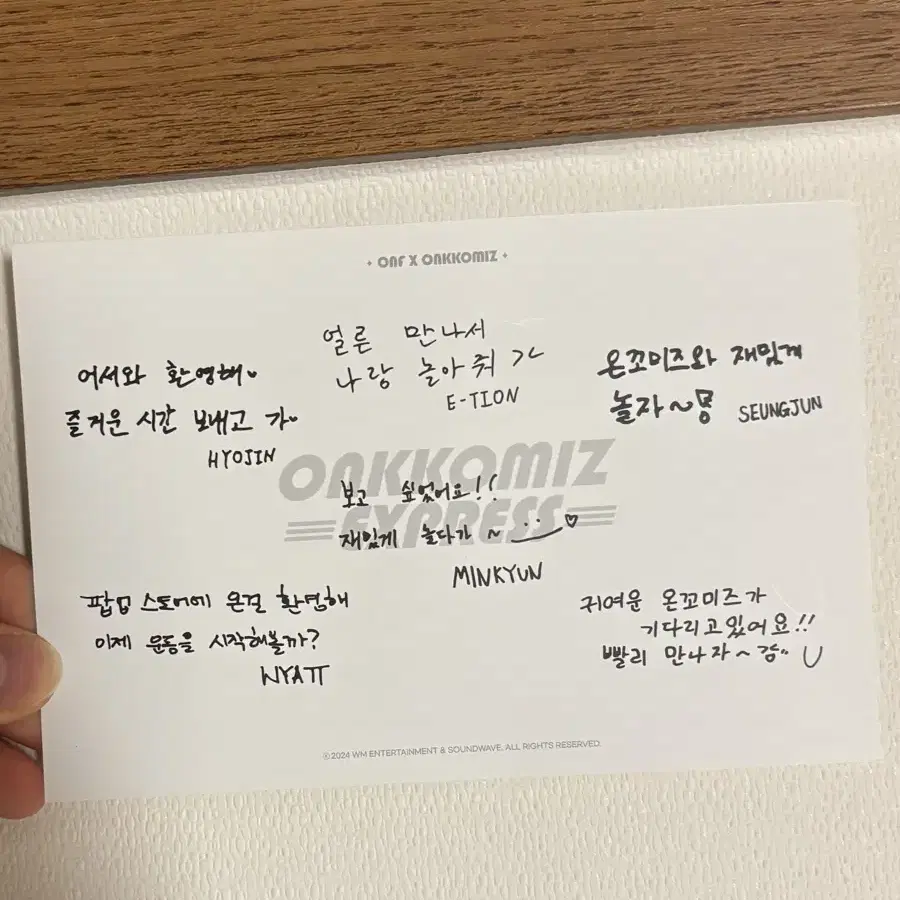 ONF X ONKKOMIZ
어서와 환영해
즐거운 시간 보내고 가
HYOJIN
얼른 만나서
나랑 놀아줘
E-TION
온꼬미즈와 재밌게
놀자~
SEUNGJUN
ONKKOMIZ
EXPRESS
보고 싶었어요!!
재밌게 놀다가~
MINKYUN
팝업 스토어에 온걸 환영해
이제 운동을 시작해볼까?
WYATT
귀여운 온꼬미즈가
기다리고있어요!!
빨리 만나자~ U
©2024 WM ENTERTAINMENT & SOUNDWAVE. ALL RIGHTS RESERVED.